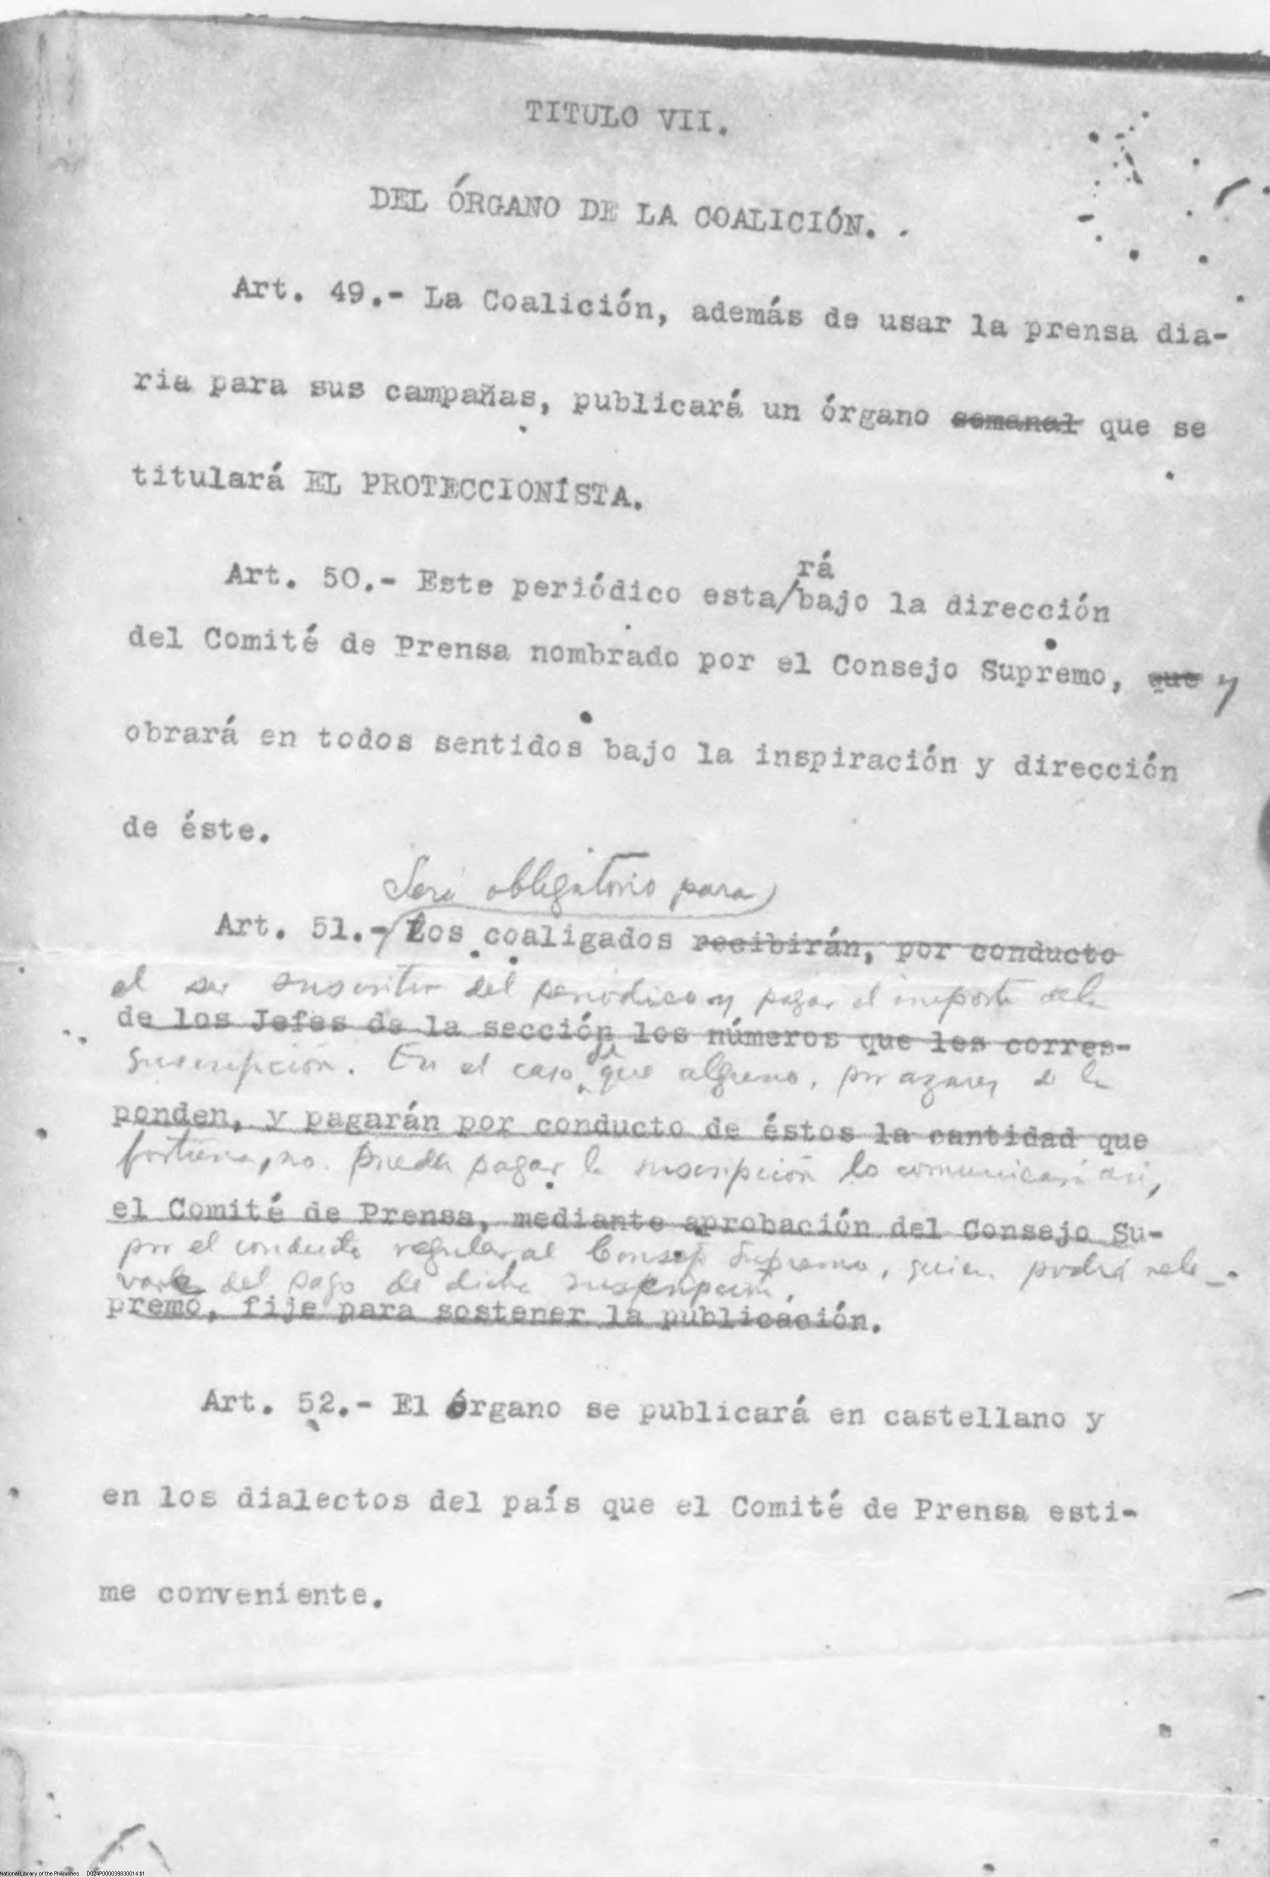 TITULO VII.
DEL ÓRGANO DE LA COALICIÓN.
Art. 49.- La Coalición, además de usar la prensa dia-
ria para sus campañas, publicará un órgano semanal que se
titulará EL PROTECCIONÍSTA.
rá
Art. 50.- Este periódico esta/bajo la dirección
del Comité de Prensa nombrado por el Consejo Supremo, que y
obrará en todos sentidos bajo la inspiración y dirección
de éste.
Será obligatorio para
Art. 51.- Los coaligados recibirán, por conducto
el ser suscritor del periódico y pagar el importe de la
de los Jefes de la sección los números que les corres-
suscripción. En el caso de que alguno, por azares de la
ponden, y pagarán por conducto de éstos la cantidad que
fortuna, no pueda pagar la suscripción lo comunicará así,
el Comité de Prensa, mediante aprobación del Consejo Su-
por el conducto regular al Consejo Supremo, quien podrá rele-
varle del pago de dicha suscripción.
premo, fije para sostener la publicación.
Art. 52.- El órgano se publicará en castellano y
en los dialectos del país que el Comité de Prensa esti-
me conveniente.
National Library of the Philippines